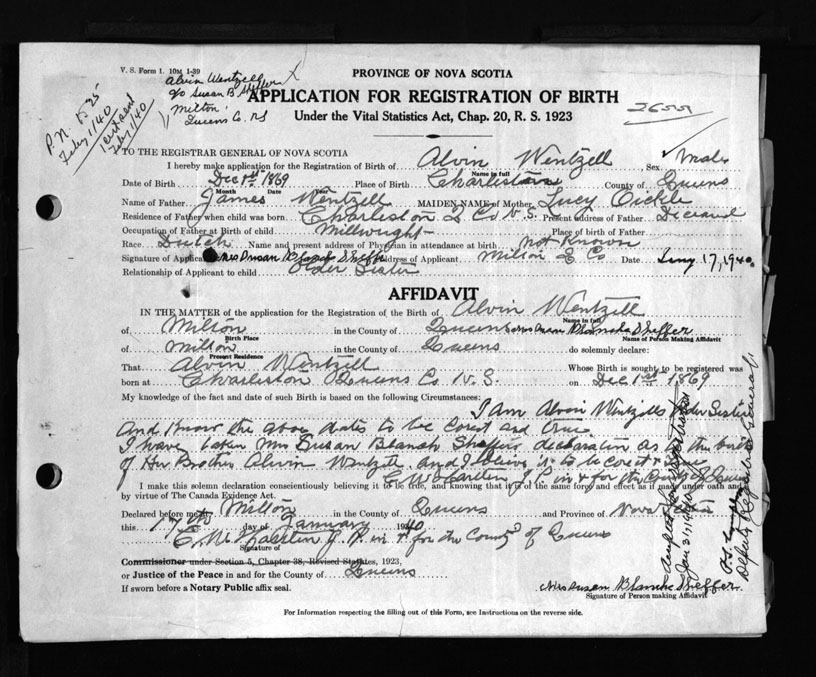 V. S. Form 1. 10M 1-39
Alvin Wentzell
c/o Susan B. Sheffer
Milton
Queens Co. NS
P.N. 525
Feby 1/40
1 cert send
Feby 1/40
PROVINCE OF NOVA SCOTIA
APPLICATION FOR REGISTRATION OF BIRTH
Under the Vital Statistics Act, Chap. 20, R. S. 1923
TO THE REGISTRAR GENERAL OF NOVA SCOTIA
I hereby make application for the Registration of Birth of Alvin Wentzell Sex Male
Name in full
Date of Birth Dec 1st 1869 Place of Birth Charleston County of Queens
Month Date Year
Name of Father James Wentzell MAIDEN NAME of Mother Lucy Oickle
Residence of Father when child was born Charleston Q Co N.S. Present address of Father Deceased
Occupation of Father at Birth of child Millwright Place of birth of Father
Race Dutch Name and present address of Physician in attendance at birth not Known
Signature of Applicant Mrs Susan Blanche Sheffer Address of Applicant Milton Q Co Date Jany 17, 1940
Relationship of Applicant to child Older Sister
AFFIDAVIT
IN THE MATTER of the application for the Registration of the Birth of Alvin Wentzell
Name in full
of Milton in the County of Queens Mrs Susan Blanche Sheffer
Birth Place Name of Person Making Affidavit
of Milton in the County of Queens do solemnly declare:
Present Residence
That Alvin Wentzell Whose Birth is sought to be registered was
born at Charleston Queens Co. N.S. on Dec 1st 1869
My knowledge of the fact and date of such Birth is based on the following Circumstances:
I Am Alvin Wentzells older Sister
And I know the above dates to be Corect and true
I have taken Mrs Susan Blansh Sheffers declaration as to the birth
of Her Brother Alvin Wentzell and I believe it to be corect & true
J.P. in & for the County of Queens
I make this solemn declaration conscientiously believing it to be true, and knowing that it is of the same force and effect as if made under oath and
by virtue of The Canada Evidence Act.
Declared before me at Milton in the County of Queens and Province of Nova Scotia
this 17th day of January 1940
J.P. in & for the County of Queens
Signature of
Commissioner under Section 5, Chapter 38, Revised Statutes, 1923,
or Justice of the Peace in and for the County of Queens
If sworn before a Notary Public affix seal.
Mrs Susan Blanche Sheffer
Signature of Person making Affidavit
Accepted for registration
Jan 31, 1940
Deputy Registrar General
For Information respecting the filling out of this Form, see Instructions on the reverse side.